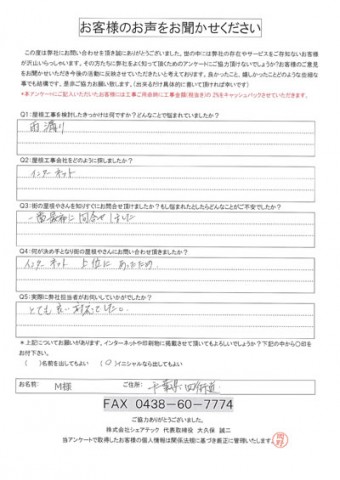 お客様のお声をお聞かせください
この度は弊社にお問い合わせを頂き誠にありがとうございました。街の中には弊社の存在やサービスをご存知ないお客様
が沢山いらっしゃいます。その方たちに弊社をよく知って頂くためのアンケートにご協力頂けないでしょうか?お客様のご意見
をお聞かせいただき今後の活動に反映させていただきたいと考えております。良かったこと、嬉しかったことどのような些細な
事でも結構です。是非ご協力お願い致します。(出来るだけ具体的に書いて頂ければ幸いです)
*本アンケートにご記入いただいたお客様には工事ご用命時に工事金額(税抜き)の2%をキャッシュバックさせていただきます。
Q1:屋根工事を検討したきっかけは何ですか?どんなことで悩まれていましたか?
雨漏り
Q2:屋根工事会社をどのように探しましたか?
インターネット
Q3:街の屋根やさんを知りすぐにお問合せ頂けましたか?もし悩まれたとしたらどんなことがご不安でしたか?
一番最初に問合せしました
Q4:何が決め手となり街の屋根やさんにお問い合わせ頂きましたか?
インターネット 上位にあったため
Q5:実際に弊社担当者がお伺いしていかがでしたか?
とても良い対応でした。
*上記についてお願いがあります。インターネットや印刷物に掲載させて頂いてもよろしいでしょうか?下記の中から○印を
お付け下さい。
( )名前を出してもよい (○)イニシャルなら出してもよい
お名前: M様 ご住所: 千葉県四街道
FAX 0438-60-7774
ご協力ありがとうございました。
株式会社シェアテック 代表取締役 大久保 誠二
当アンケートで取得したお客様の個人情報は関係法規に基づき厳正に管理いたします。